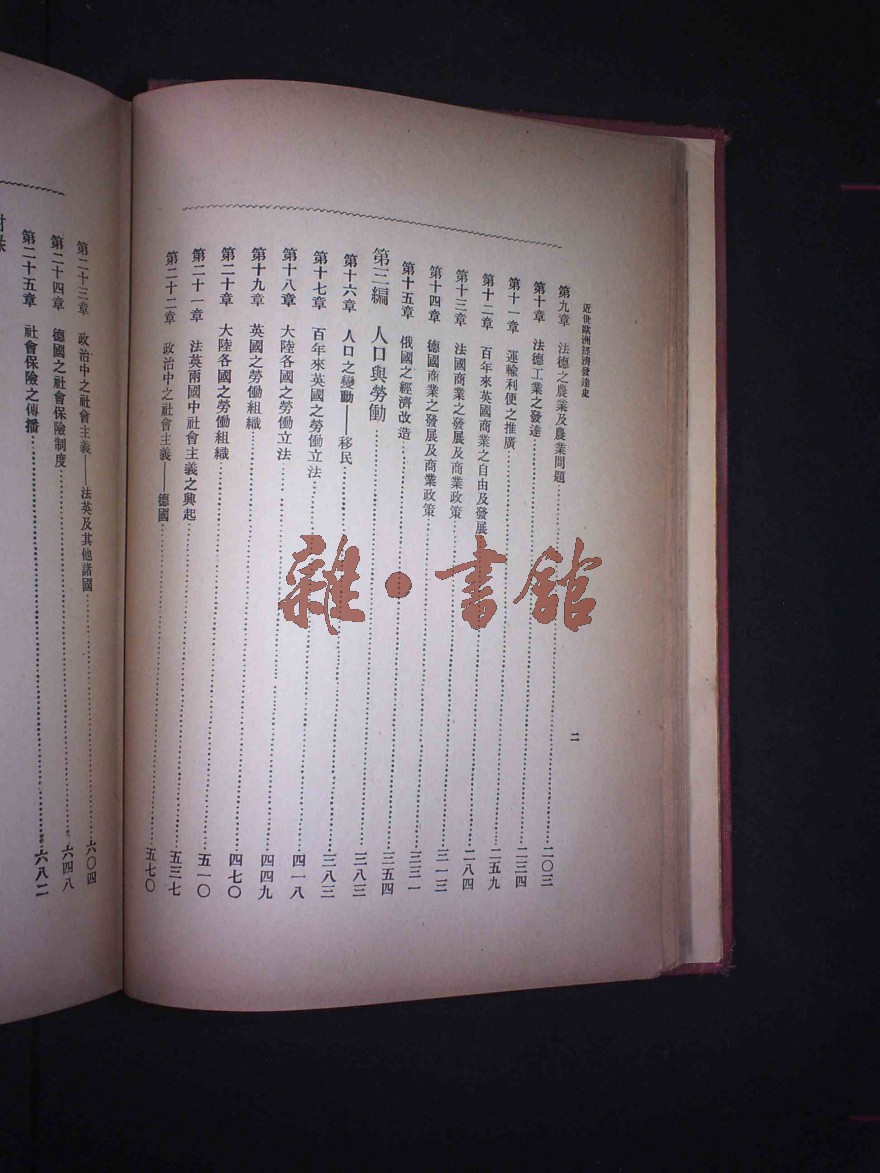 近世歐洲經濟發達史
二
第九章 法德之農業及農業問題……二〇三
第十章 法德工業之發達……二三四
第十一章 運輸利便之推廣……二五九
第十二章 百年來英國商業之自由及發展……二八四
第十三章 法國商業之發展及商業政策……三一三
第十四章 德國商業之發展及商業政策……三三一
第十五章 俄國之經濟改造……三五四
第三編 人口與勞働……三八三
第十六章 人口之變動——移民……三八三
第十七章 百年來英國之勞働立法……四一八
第十八章 大陸各國之勞働立法……四四九
第十九章 英國之勞働組織……四七〇
第二十章 大陸各國之勞働組織……五一〇
第二十一章 法英兩國中社會主義之興起……五三七
第二十二章 政治中之社會主義——德國……五七〇
第二十三章 政治中之社會主義——法英及其他諸國……六〇四
第二十四章 德國之社會保險制度……六四八
第二十五章 社會保險之傳播……六八二
雜·書館